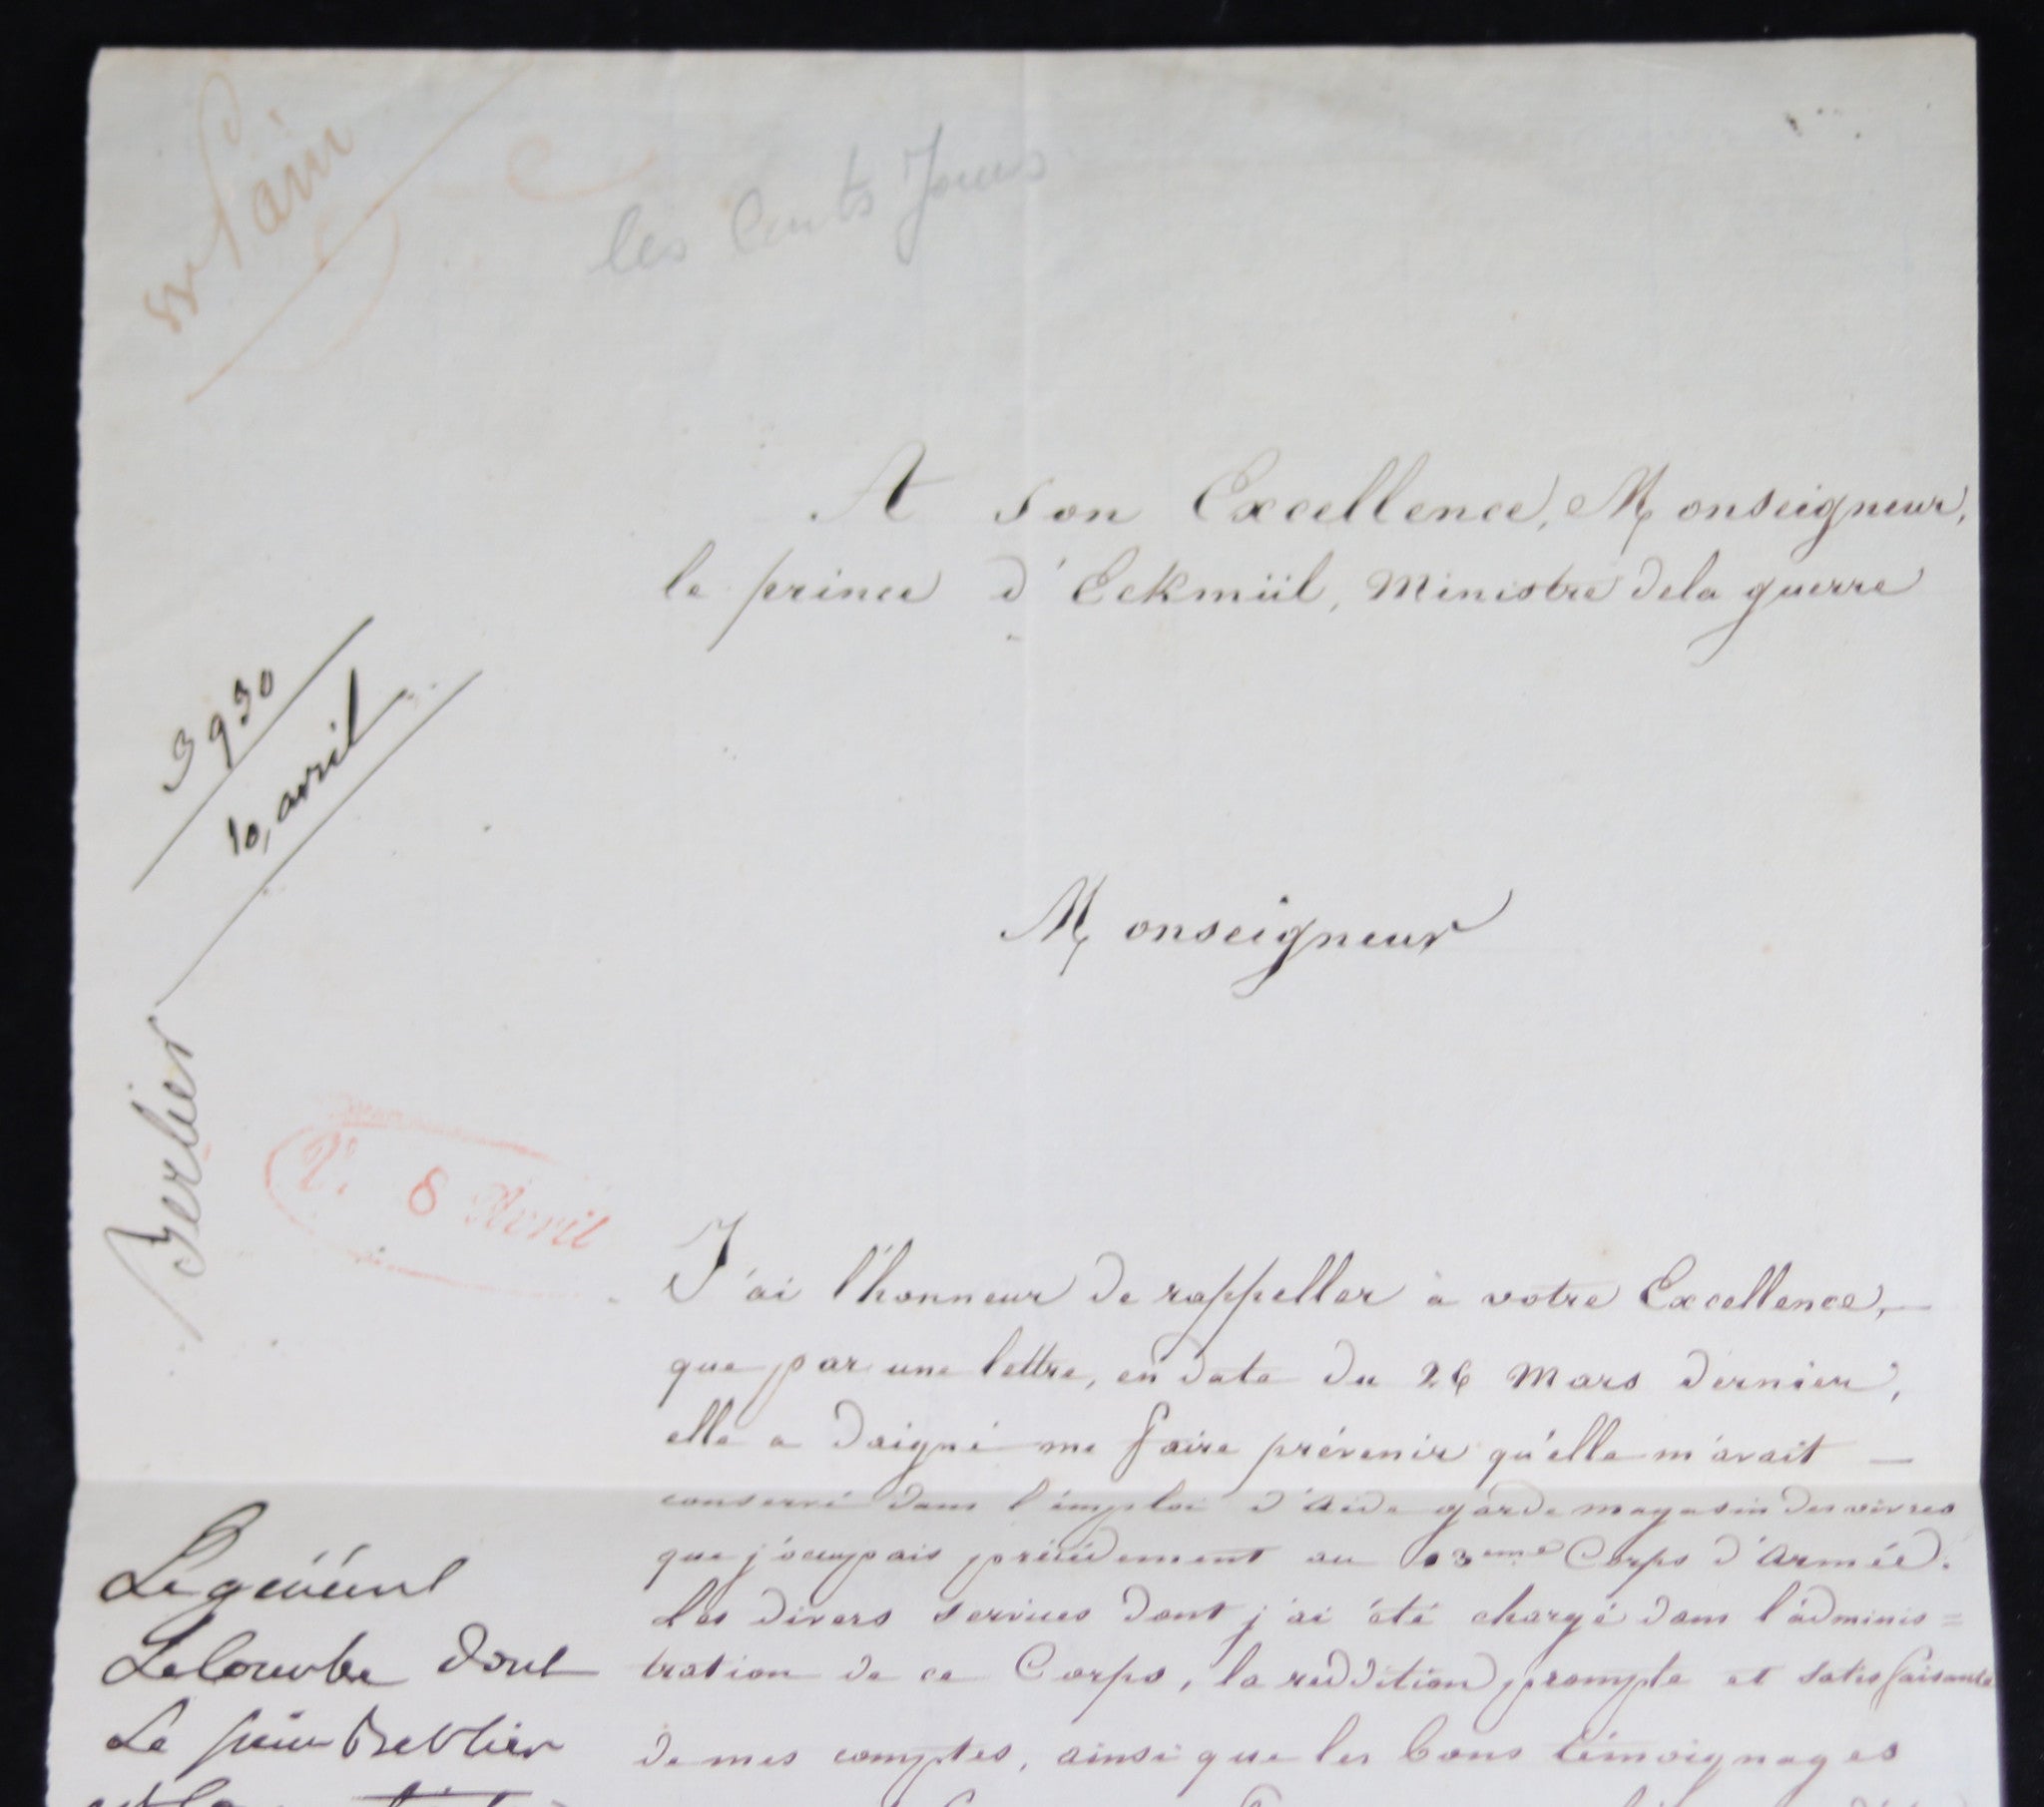 Pain
les Cents Jours
A Son Excellence, Monseigneur,
le prince d'Eckmül, Ministre dela guerre
3930
10, avril
Monseigneur
Berlier
8 Avril
J'ai l'honneur de rappeller à votre Excellence,
que par une lettre, en date du 26 Mars dernier,
elle a daigné me faire prévenir qu'elle m'avait
conservé dans l'emploi d'Aide garde magasin des vivres
que j'occupais précédement au 13eme Corps d'Armée.
Les divers services dont j'ai été chargé dans l'adminis=
tration de ce Corps, la reddition prompte et satisfaisante
de mes comptes, ainsi que les bons témoignages
Le général
dont
Le